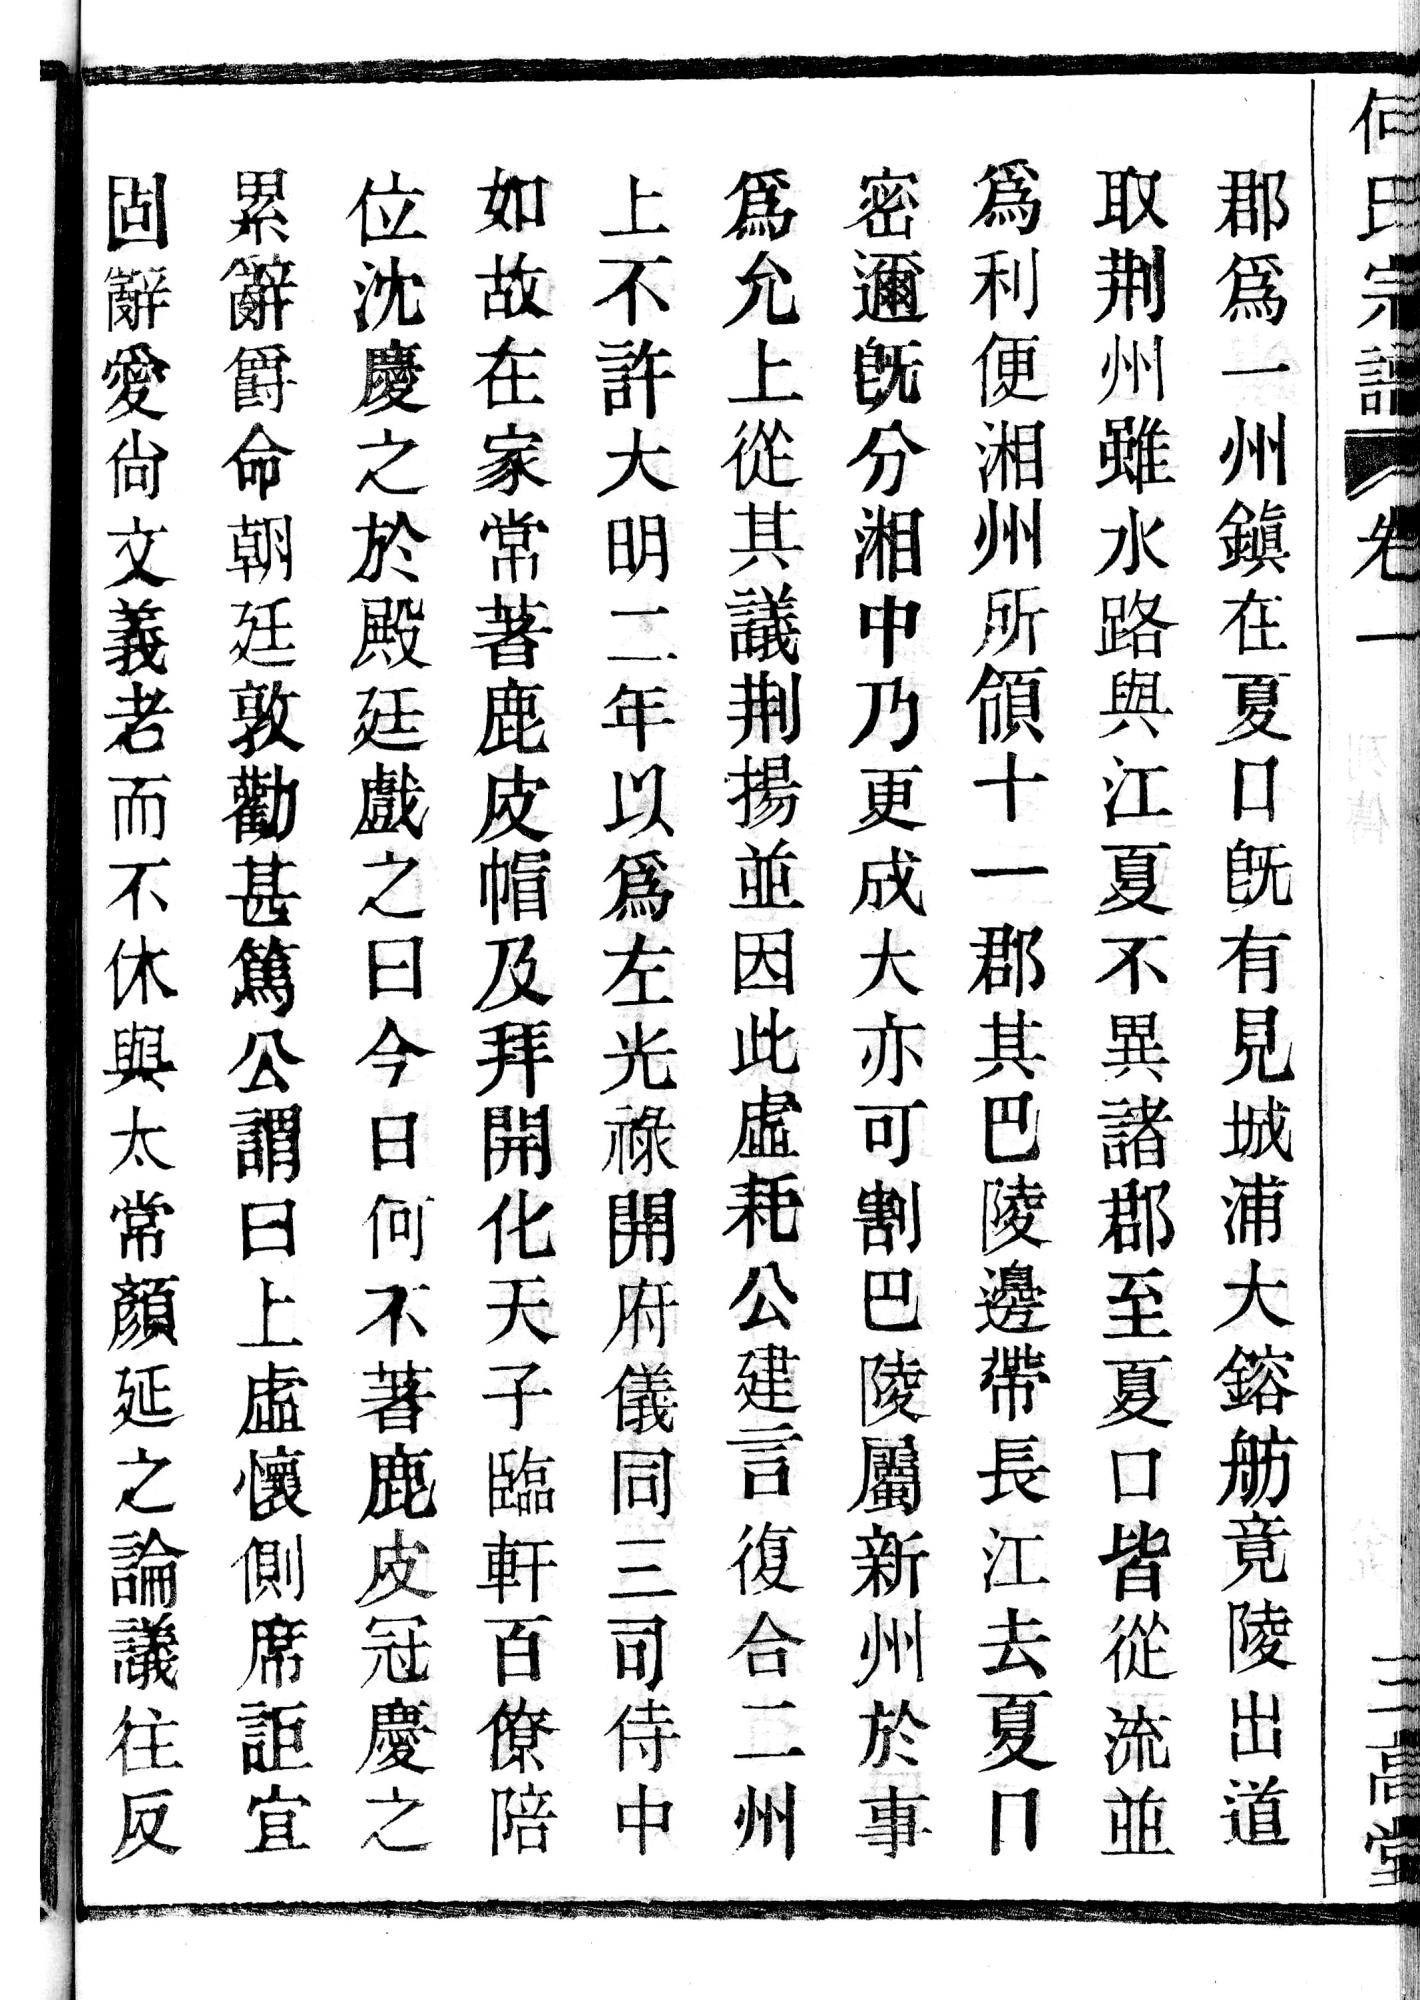 何氏宗譜 卷一 三高堂
郡爲一州鎭在夏口旣有見城浦大鎔舫竟陵出道
取荆州雖水路與江夏不異諸郡至夏口皆從流並
爲利便湘州所領十一郡其巴陵邊帶長江去夏口
密邇旣分湘中乃更成大亦可割巴陵屬新州於事
爲允上從其議荆揚並因此虛耗公建言復合二州
上不許大明二年以爲左光祿開府儀同三司侍中
如故在家常著鹿皮帽及拜開化天子臨軒百僚陪
位沈慶之於殿廷戲之曰今日何不著鹿皮冠慶之
累辭爵命朝廷敦勸甚篤公謂曰上虛懷側席詎宜
固辭愛尙文義老而不休與太常顏延之論議往反